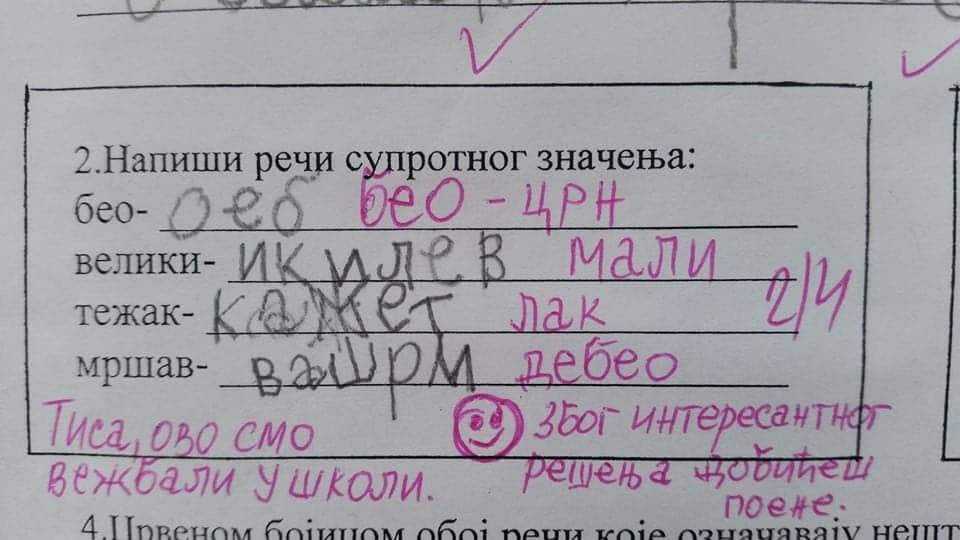 2.Напиши речи супротног значења:
бео- оеб бео - црн
велики- икилев мали
тежак- кажет лак 2/4
мршав- вашрм дебео
Тиса, ово смо ☺ због интересантног
вежбали у школи. решења добићеш
поене.
4.Црвеном бојицом обој речи које означавају нешт